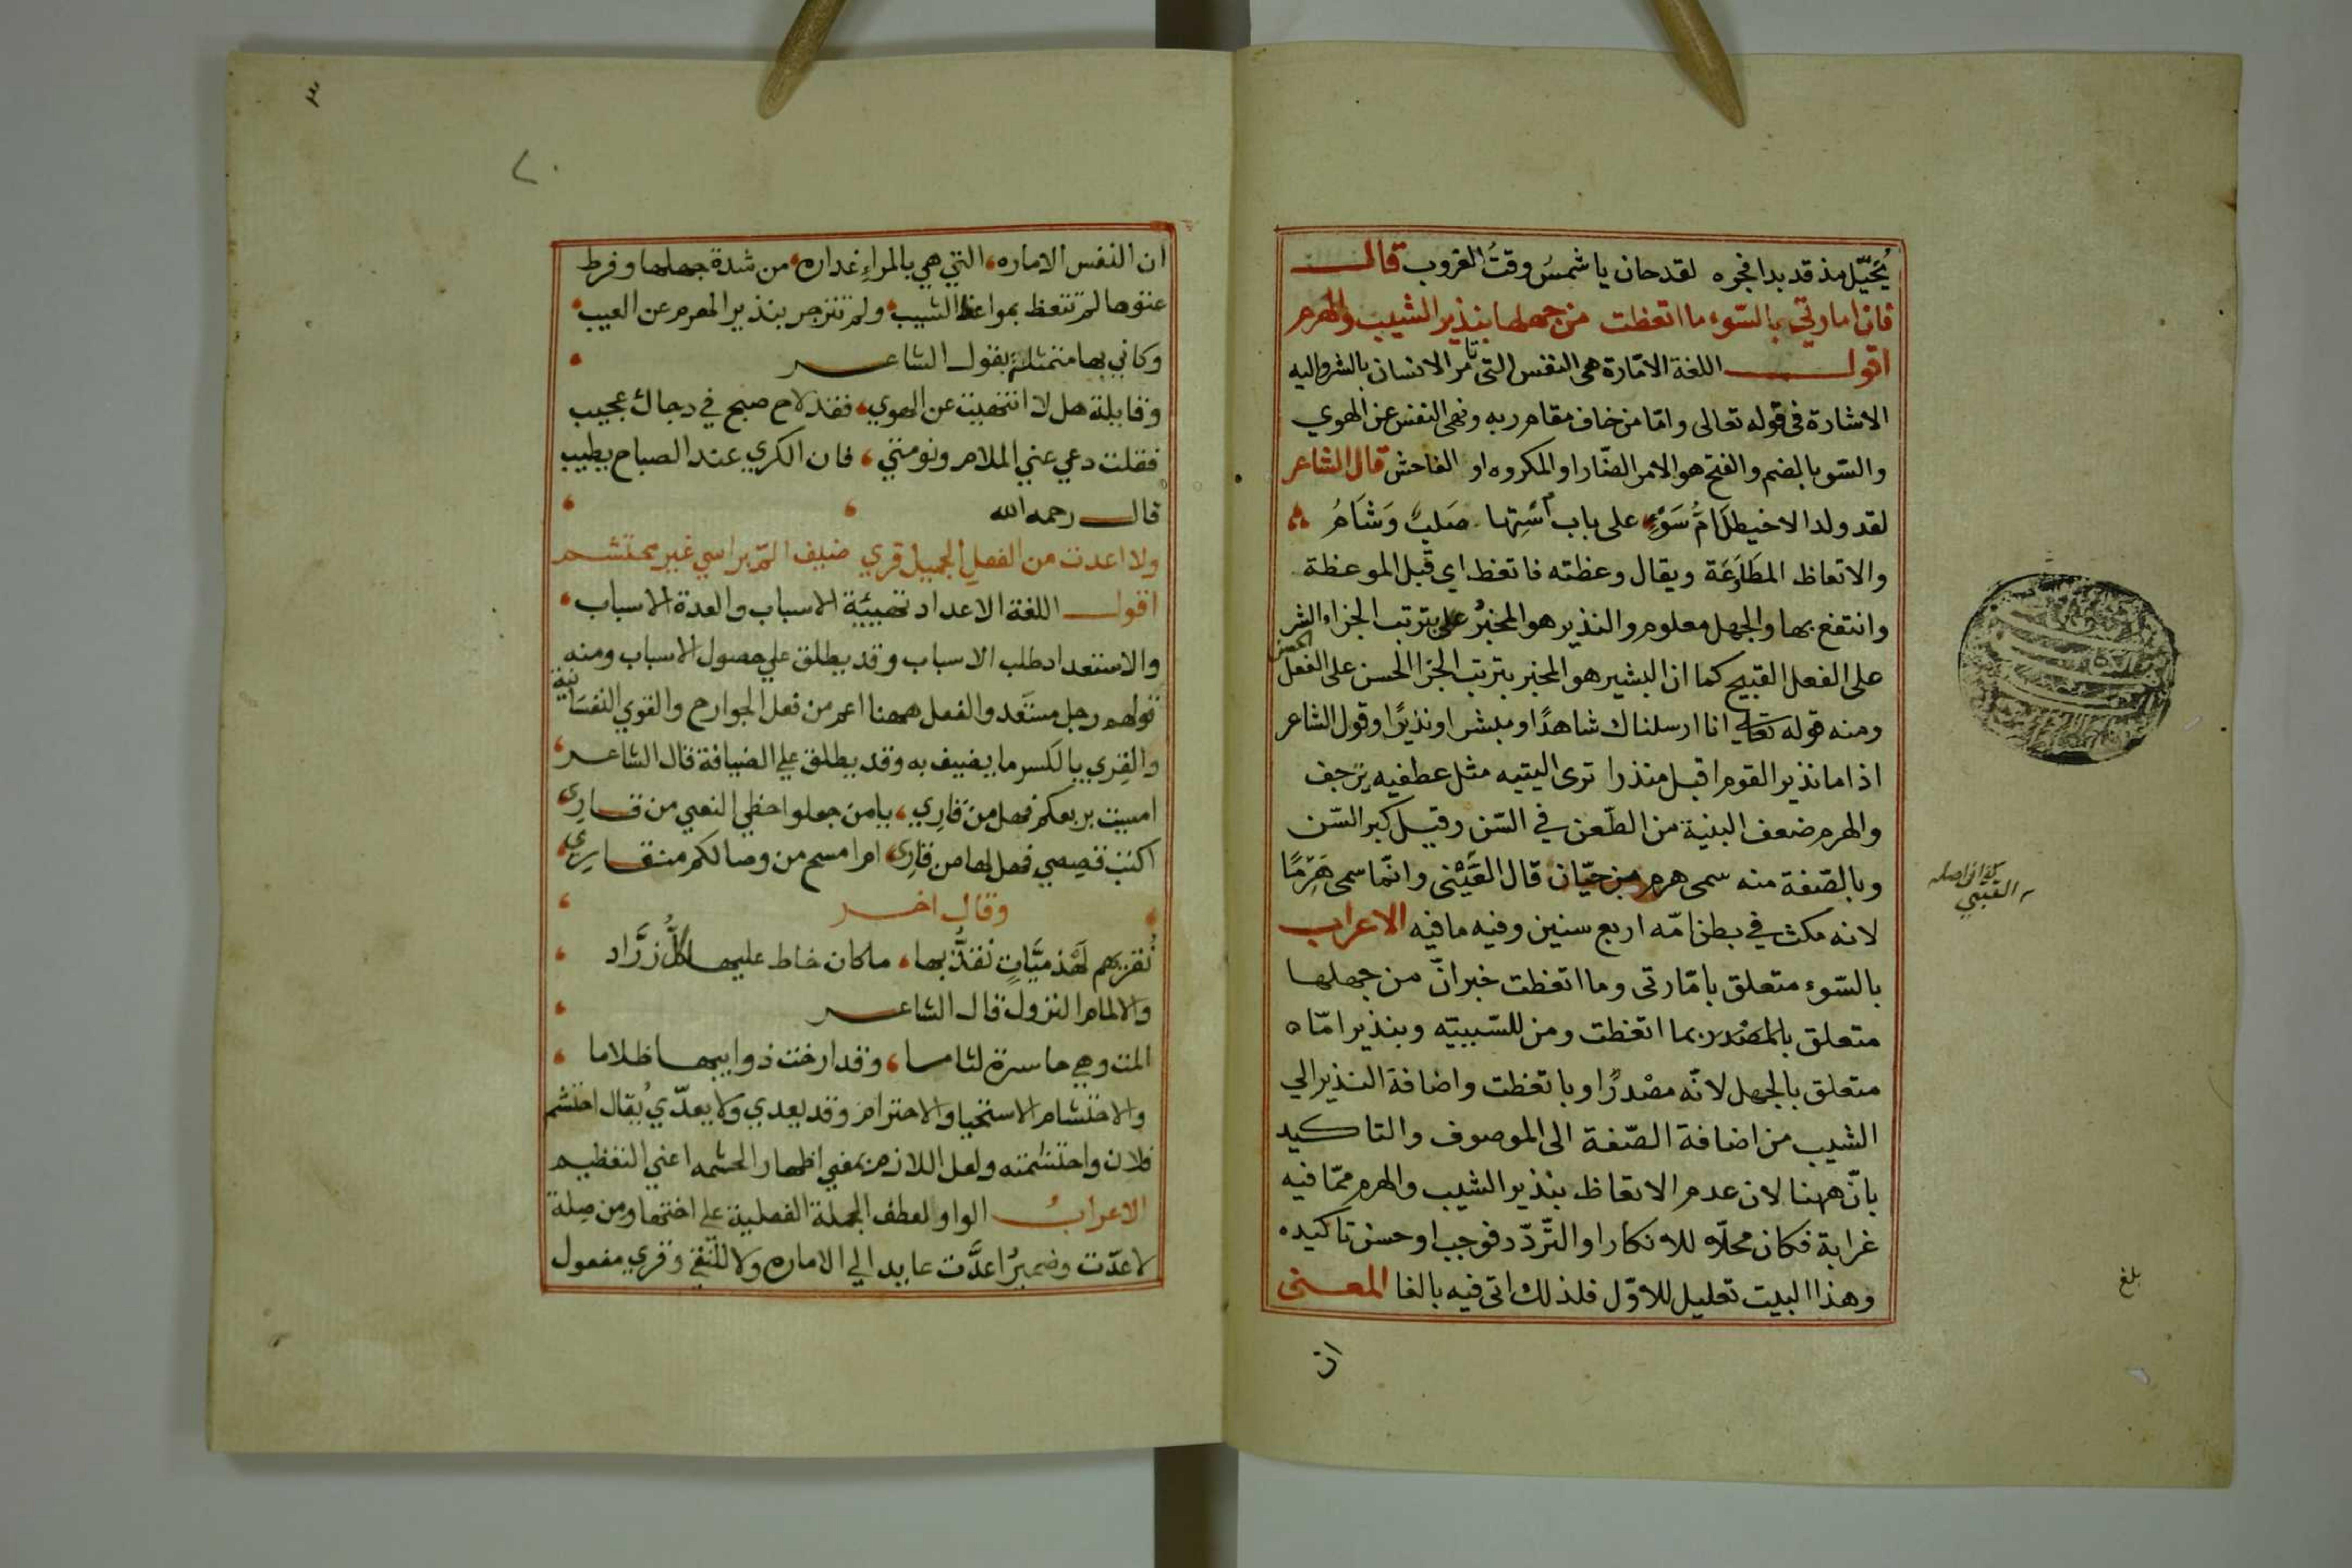 يُخَيّل مذ قد بدا فجره لقد حان يا شمسُ وقتُ الغروب قال
فان امارتي بالسّوء ما اتعظت من جهلها بنذير الشيب والهرم
اقول اللغة الامّارة هى النفس التى تامر الانسان بالشر واليه
الاشارة فى قوله تعالى وامّا من خاف مقام ربه ونهى النفس عن الهوي
والسّو بالضم والفتح هو الامر الضّار او المكروه او الفاحش قال الشاعر
لقد ولد الاخيطل امُّ سَوْءٍ على باب اسْتِها صَلبٌ وَشَامُ
والاتعاظ المطَاوَعَة ويقال وعظته فاتعظ اى قبل الموعظة
وانتفع بها والجهل معلوم والنذير هو المخبرُ على بترتب الجزاء الشر
على الفعل القبيح كما ان البشير هو المخبر بترتب الجزا الحسن على الفعل
الحسن
ومنه قوله تعالى انا ارسلناك شاهدًا ومبشرا ونذيرًا وقول الشاعر
اذا ما نذير القوم اقبل منذرا ترى التيه مثل عطفيه يرجف
والهرم ضعف البنية من الطّعن في السّن وقيل كبر السّن
وبالصّفة منه سمى هرم بن حيّان قال القَيَْنى وانّما سمى هَرِمًا
لانه مكث في بطن امّه اربع سنين وفيه ما فيه الاعراب
بالسّوء متعلق بامّارتى وما اتعظت خبر انّ من جهلها
متعلق بالمصْدر بما اتعظت ومن للسّببيّه وبنذير امّا
متعلق بالجهل لانّه مصْدرًا وباتعظت واضافة النذير الي
الشيب من اضافة الصّفة الى الموصوف والتاكيد
بانّ ههنا لان عدم الاتعاظ بنذير الشيب والهرم ممّا فيه
غرابة فكان محلّا للانكار او التّردّد فوجب او حسن تاكيده
وهذا البيت تعليل للاوّل فلذلك اتى فيه بالفا المعنى
ان
كذا فى اصله
القيني
بلغ
٣
ان النفس الاماره التي هي بالمراء غداره من شدة جهلها وفرط
عتوها لم تتعظ بمواعظ الشيب ولم تنزجر بنذير الهرم عن العيب
وكاني بها متمثلة بقول الشاعر
وقايلة هل لا انتهيت عن الهوي فقد لاح صبح في دجاك عجيب
فقلت دعي عني الملام ونومتي فان الكري عند الصباح يطيب
قال رحمه الله
ولا اعدت من الفعل الجميل قري ضيف المّ براسي غير محتشم
اقول اللغة الاعداد تهيئة الاسباب والعدة الاسباب
والاستعداد طلب الاسباب وقد يطلق علي حصول الاسباب ومنه
قولهم رجل مستَعد والفعل ههنا اعم من فعل الجوارح والقوي النفسانية
والقِري بالكسر ما يضيف به وقد يطلق علي الضيافة قال الشاعر
امسيت بربعكم فهل من قارِي يا من جعلوا حظي النعي من قاري
اكتب قصصي فهل لها من قارى ام امسح من وصالكم متقاري
وقال اخر
نُقريهم لَهْذميَّاتٍ نُقدُّ بها ما كان خاط عليهم كلُّ زرَّاد
والالمام النزول قال الشاعر
المت وهي حاسرة لثاما وقد ارخت ذوايبها ظلاما
والاحتشام الاستحيا والاحترام وقد يعدي ولا يعدّي يُقال احتشم
فلان واحتشمته ولعل اللازم بمعني اظهار الحشمه اعني التعظيم
الاعرابُ الواو لعطف الجملة الفعلية علي اختها ومن صِلة
لاعدّت وضميرُ اعدَّت عايد الي الاماره ولا للنفي وقري مفعول